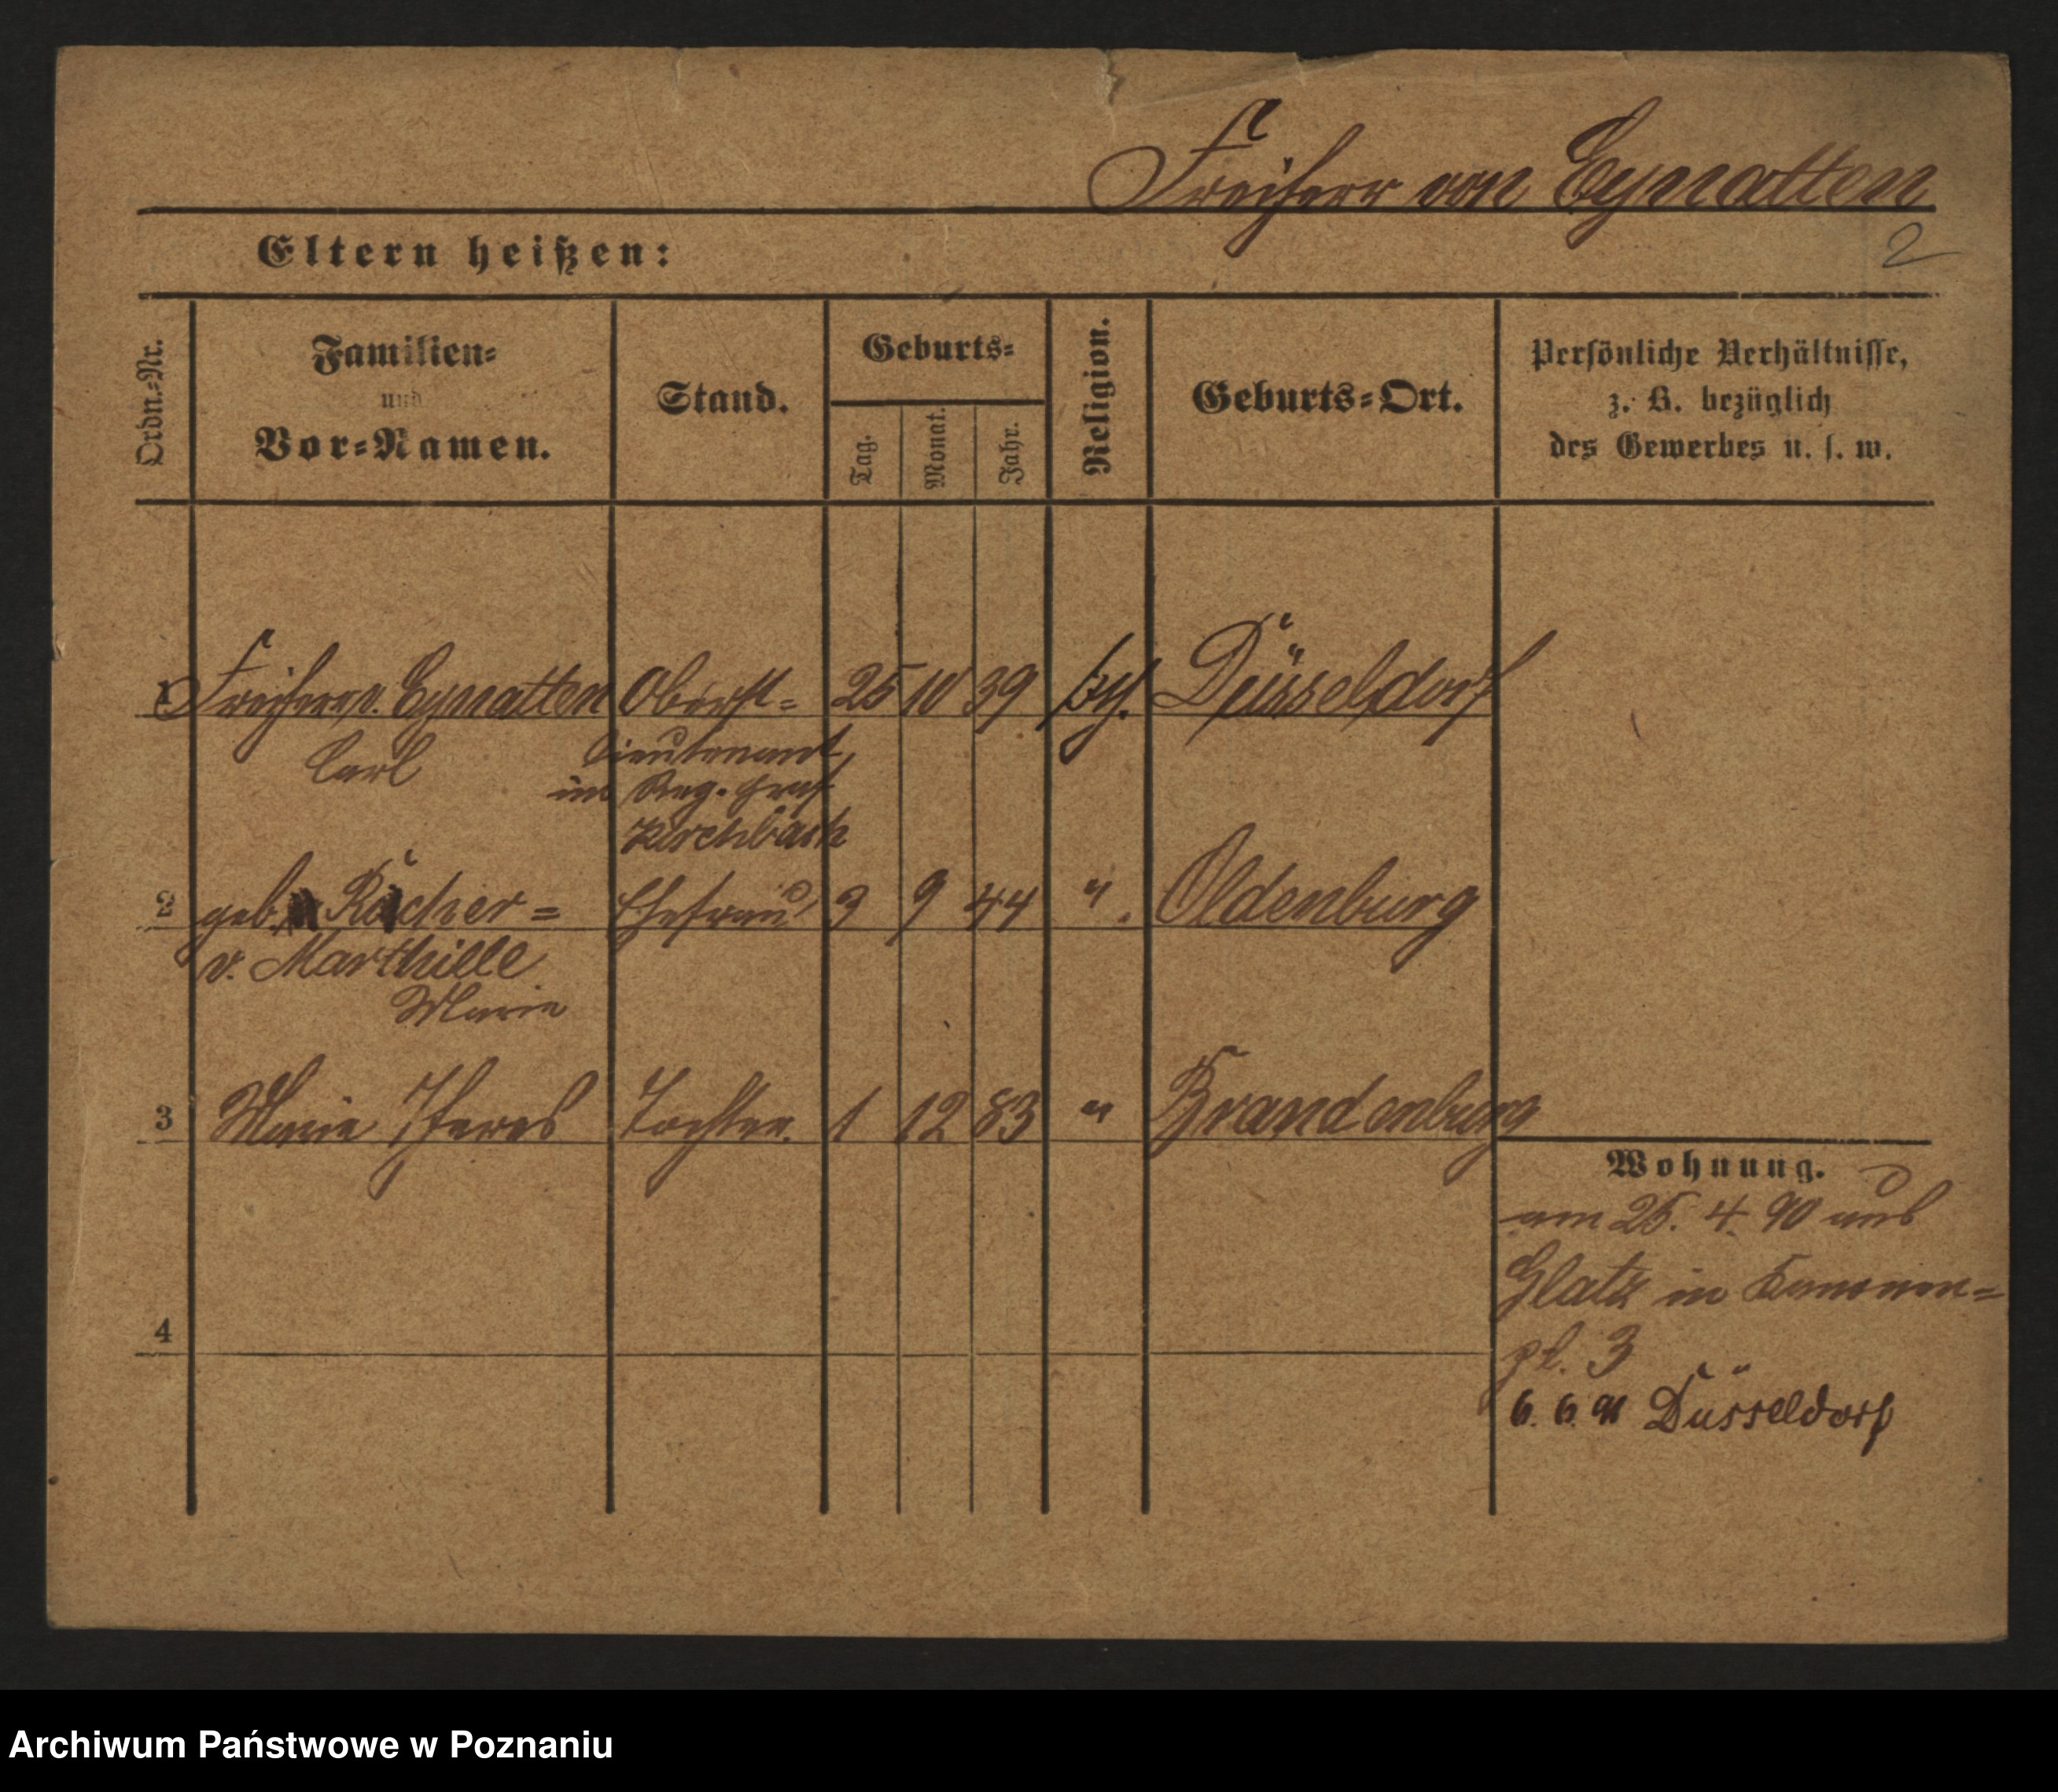 Freiherr von Eynatten
2
Eltern heißen:
Ordn.-Nr.
Familien-
und
Vor-Namen.
Stand.
Geburts-
Tag.
Monat.
Jahr.
Religion.
Geburts-Ort.
Persönliche Verhältnisse,
z. B. bezüglich
des Gewerbes u. s. w.
1 Freiherr v. Eynatten Oberst- 25 10 39 Düsseldorf
Carl Lieutenant
im Reg. Graf
Kirchbach
2 geb. Racher- Ehefrau 3 9 44 " Oldenburg
v. Marthille
Marie
3 Marie Theres Tochter. 1 12 83 " Brandenburg
Wohnung.
am 25. 4. 90 aus
Glatz in Kanonen-
pl. 3
4
6. 6. 91 Düsseldorf
Archiwum Państwowe w Poznaniu